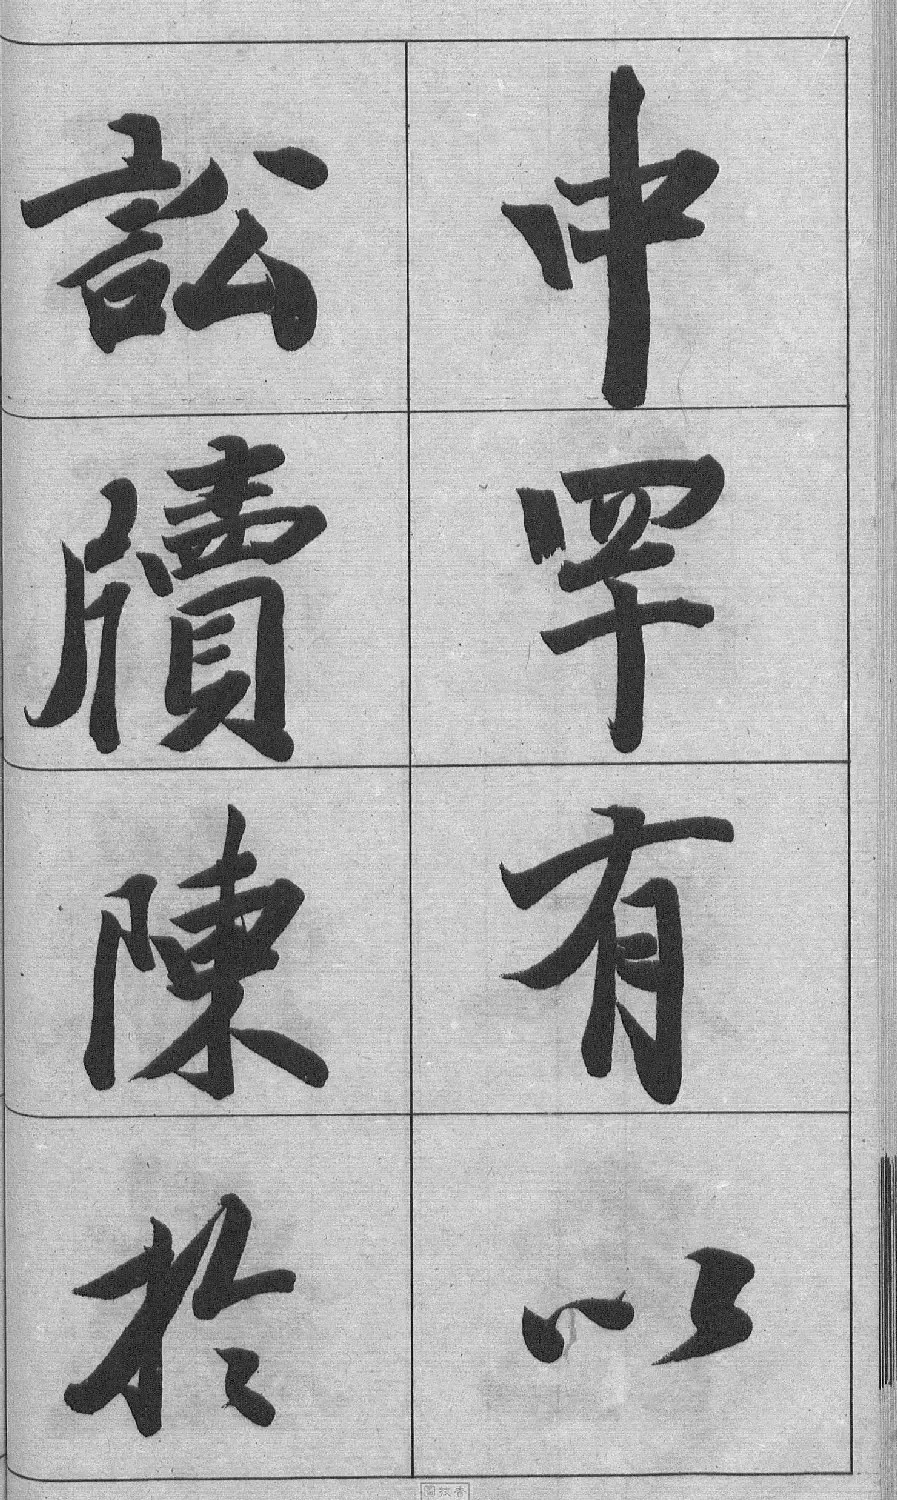 中罕有以
訟牘陳於